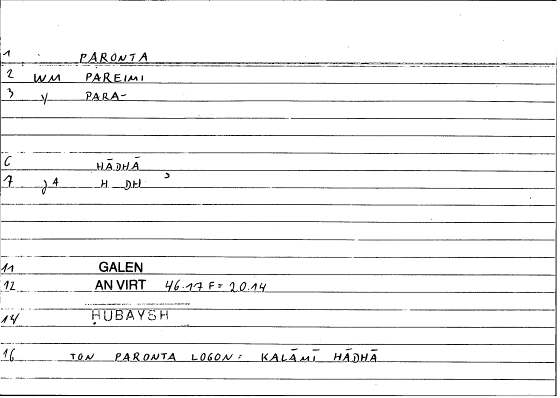 1 PARONTA
2 WM PAREIMI
3 y PARA-
6 HĀDHĀ
7 j4 H DH ʾ
11 GALEN
12 AN VIRT 46.17 F = 20.14
14 ḤUBAYSH
16 TON PARONTA LOGON = KALĀMĪ HĀDHĀ